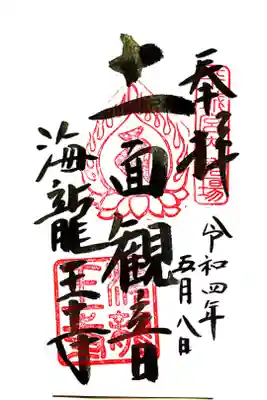 奉拝
令和四年
五月八日
十一面観音
海龍王寺